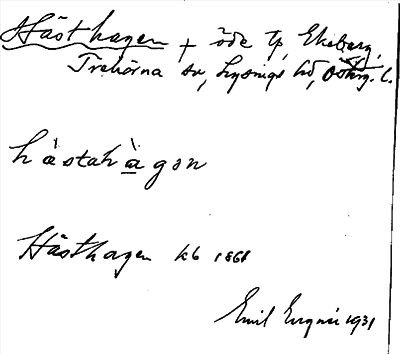 Hästhagen + öde tp, Ekeberg,
Trehörna sn, Lysings hd, Österg. l.
hästahàgon
Hästhagen kb 1861
Emil 1931